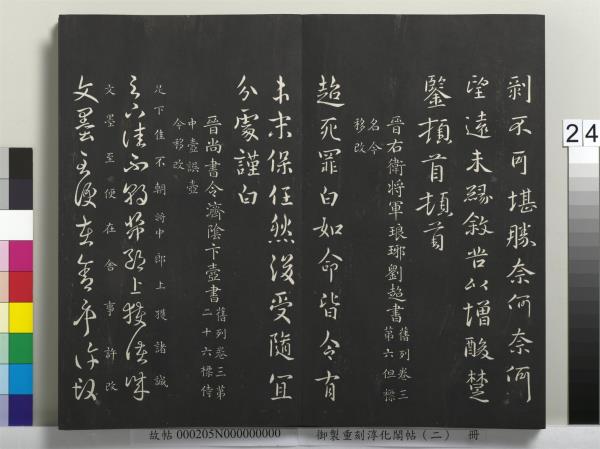 剥不可堪勝奈何奈何
望遠未緣敘苦以增酸楚
鑒頓首頓首
晉右衛將軍琅琊劉超書舊列卷三
第六但標
名今
移改
超死罪白如命皆令有
未求保任然後受隨宜
分處謹白
晉尚書令濟陰卞壼書舊列卷三第
二十六標侍
中壼誤壺
今移改
足下佳不朝將中郎上獲諸誠
文墨至便在舍事許改
24
故帖 000205N000000000 御製重刻淳化閣帖(二) 冊